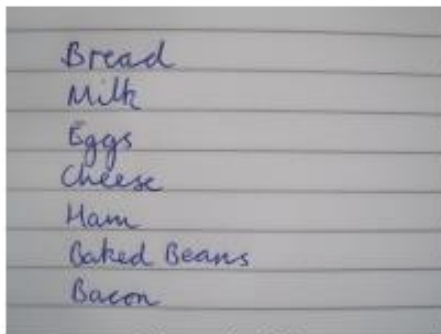 Bread
Milk
Eggs
Cheese
Ham
Baked Beans
Bacon